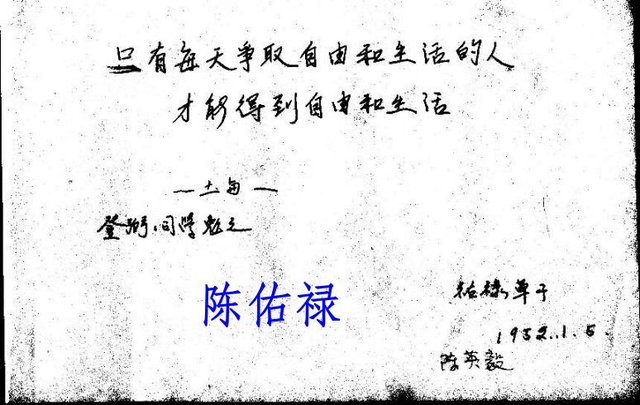 只有每天争取自由和生活的人
才能得到自由和生活
同学勉之
陈佑禄
佑禄草于
1952.1.5.
陈英毅